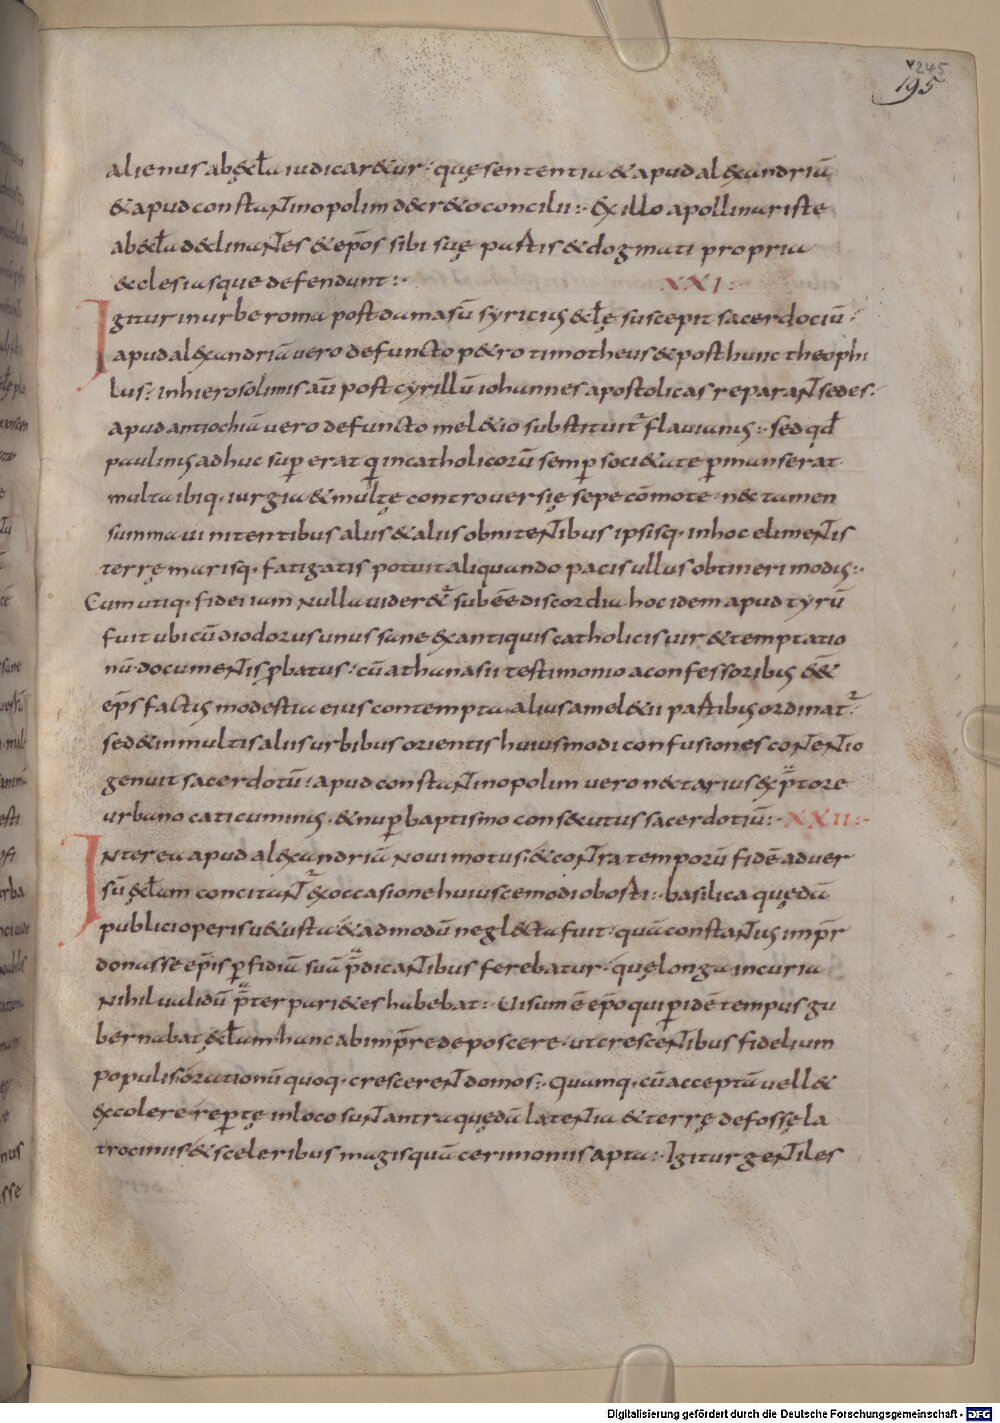 245
195
alienus ab ęcɫa iudicar&ur· quę sententia & apud al&xandriā
& apud constantinopolim decr&o concilii:· Ex illo apollinariste
ab ecɫa declinantes & ep̄os sibi suę partis & dogmati propria
ecclesiasque defendunt:· XXI:
Igitur in urbe roma post damasū syritius ecɫę suscepit sacerdociū·
apud alexandriā uero defuncto p&ro timotheus & post hunc theophi
lus· in hierosolimis aū post cyrillū iohannes apostolicas reparant sedes·
apud antiochiā uero defuncto mel&io substituit flauianus:· sed qđ
paulinus adhuc sup erat q in catholicorū semp soci&ate pmanserat·
multa ibiq· iurgia & multę controuersię sepe cōmote· nec tamen
summa ui nitentibus aliis & aliis obnitentibus ipsisq· in hoc elimentis
terrę marisq· fatigatis potuit aliquando pacis ullus obtineri modis:·
Cum utiq· fidei iam nulla uider& sub eē discordia hoc idem apud tyrū
fuit ubi cū diodorus unus sane ex antiquis catholicis uir & temptatio
nū documentis pbatus· cū athanasii testimonio a confessoribus ē&
ep̄s factis modestia eius contempta alius a mel&ii partibus ordinat·
sed & in multis aliis urbibus orientis huiusmodi confusiones contentio
genuit sacerdotū· apud constantinopolim uero nectarius ex p̄tore
urbano caticuminus· & nup baptismo consecutus sacerdotiū:· XXII:·
Interea apud alexandriā noui motus & contra temporū fidē aduer
sū ęcɫam concitant ex occasione huiuscemodi oborti:· basilica quędā
publici operis uetusta & admodū neglecta fuit· quā constantius imp̄r
donasse ep̄is pfidiā suā p̄dicantibus ferebatur· quę longa incuria
nihil ualidū p̄ter pari&es habebat:· Uisum ē ep̄o qui p idē tempus gu
bernabat ęcɫam hanc ab imp̄re deposcere· ut crescentibus fidelium
populis orationū quoq· crescerent domos:· Quamq· cū acceptā uell&
excolere· reptę in loco sunt antra quędā latentia & terrę defossę la
trociniis & sceleribus magis quā cerimoniis apta:· Igitur gentiles
Digitalisierung gefördert durch die Deutsche Forschungsgemeinschaft - DFG